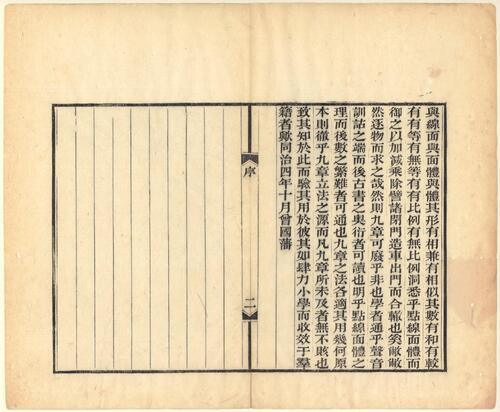 與線面與面體與體其形有相兼有相似其數有和有較
有有等有無等有有比例有無比例洞悉乎點線面體而
御之以加減乘除譬諸閉門造車出門而合轍也奚敝敝
然逐物而求之哉然則九章可廢乎非也學者通乎聲音
訓詁之端而後古書之奧衍者可讀也明乎點線面體之
理而後數之繁難者可通也九章之法各適其用幾何原
本則徹乎九章立法之源而凡九章所未及者無不賅也
致其知於此而驗其用於彼其如肆力小學而收效于羣
籍者歟同治四年十月曾國藩
序
二